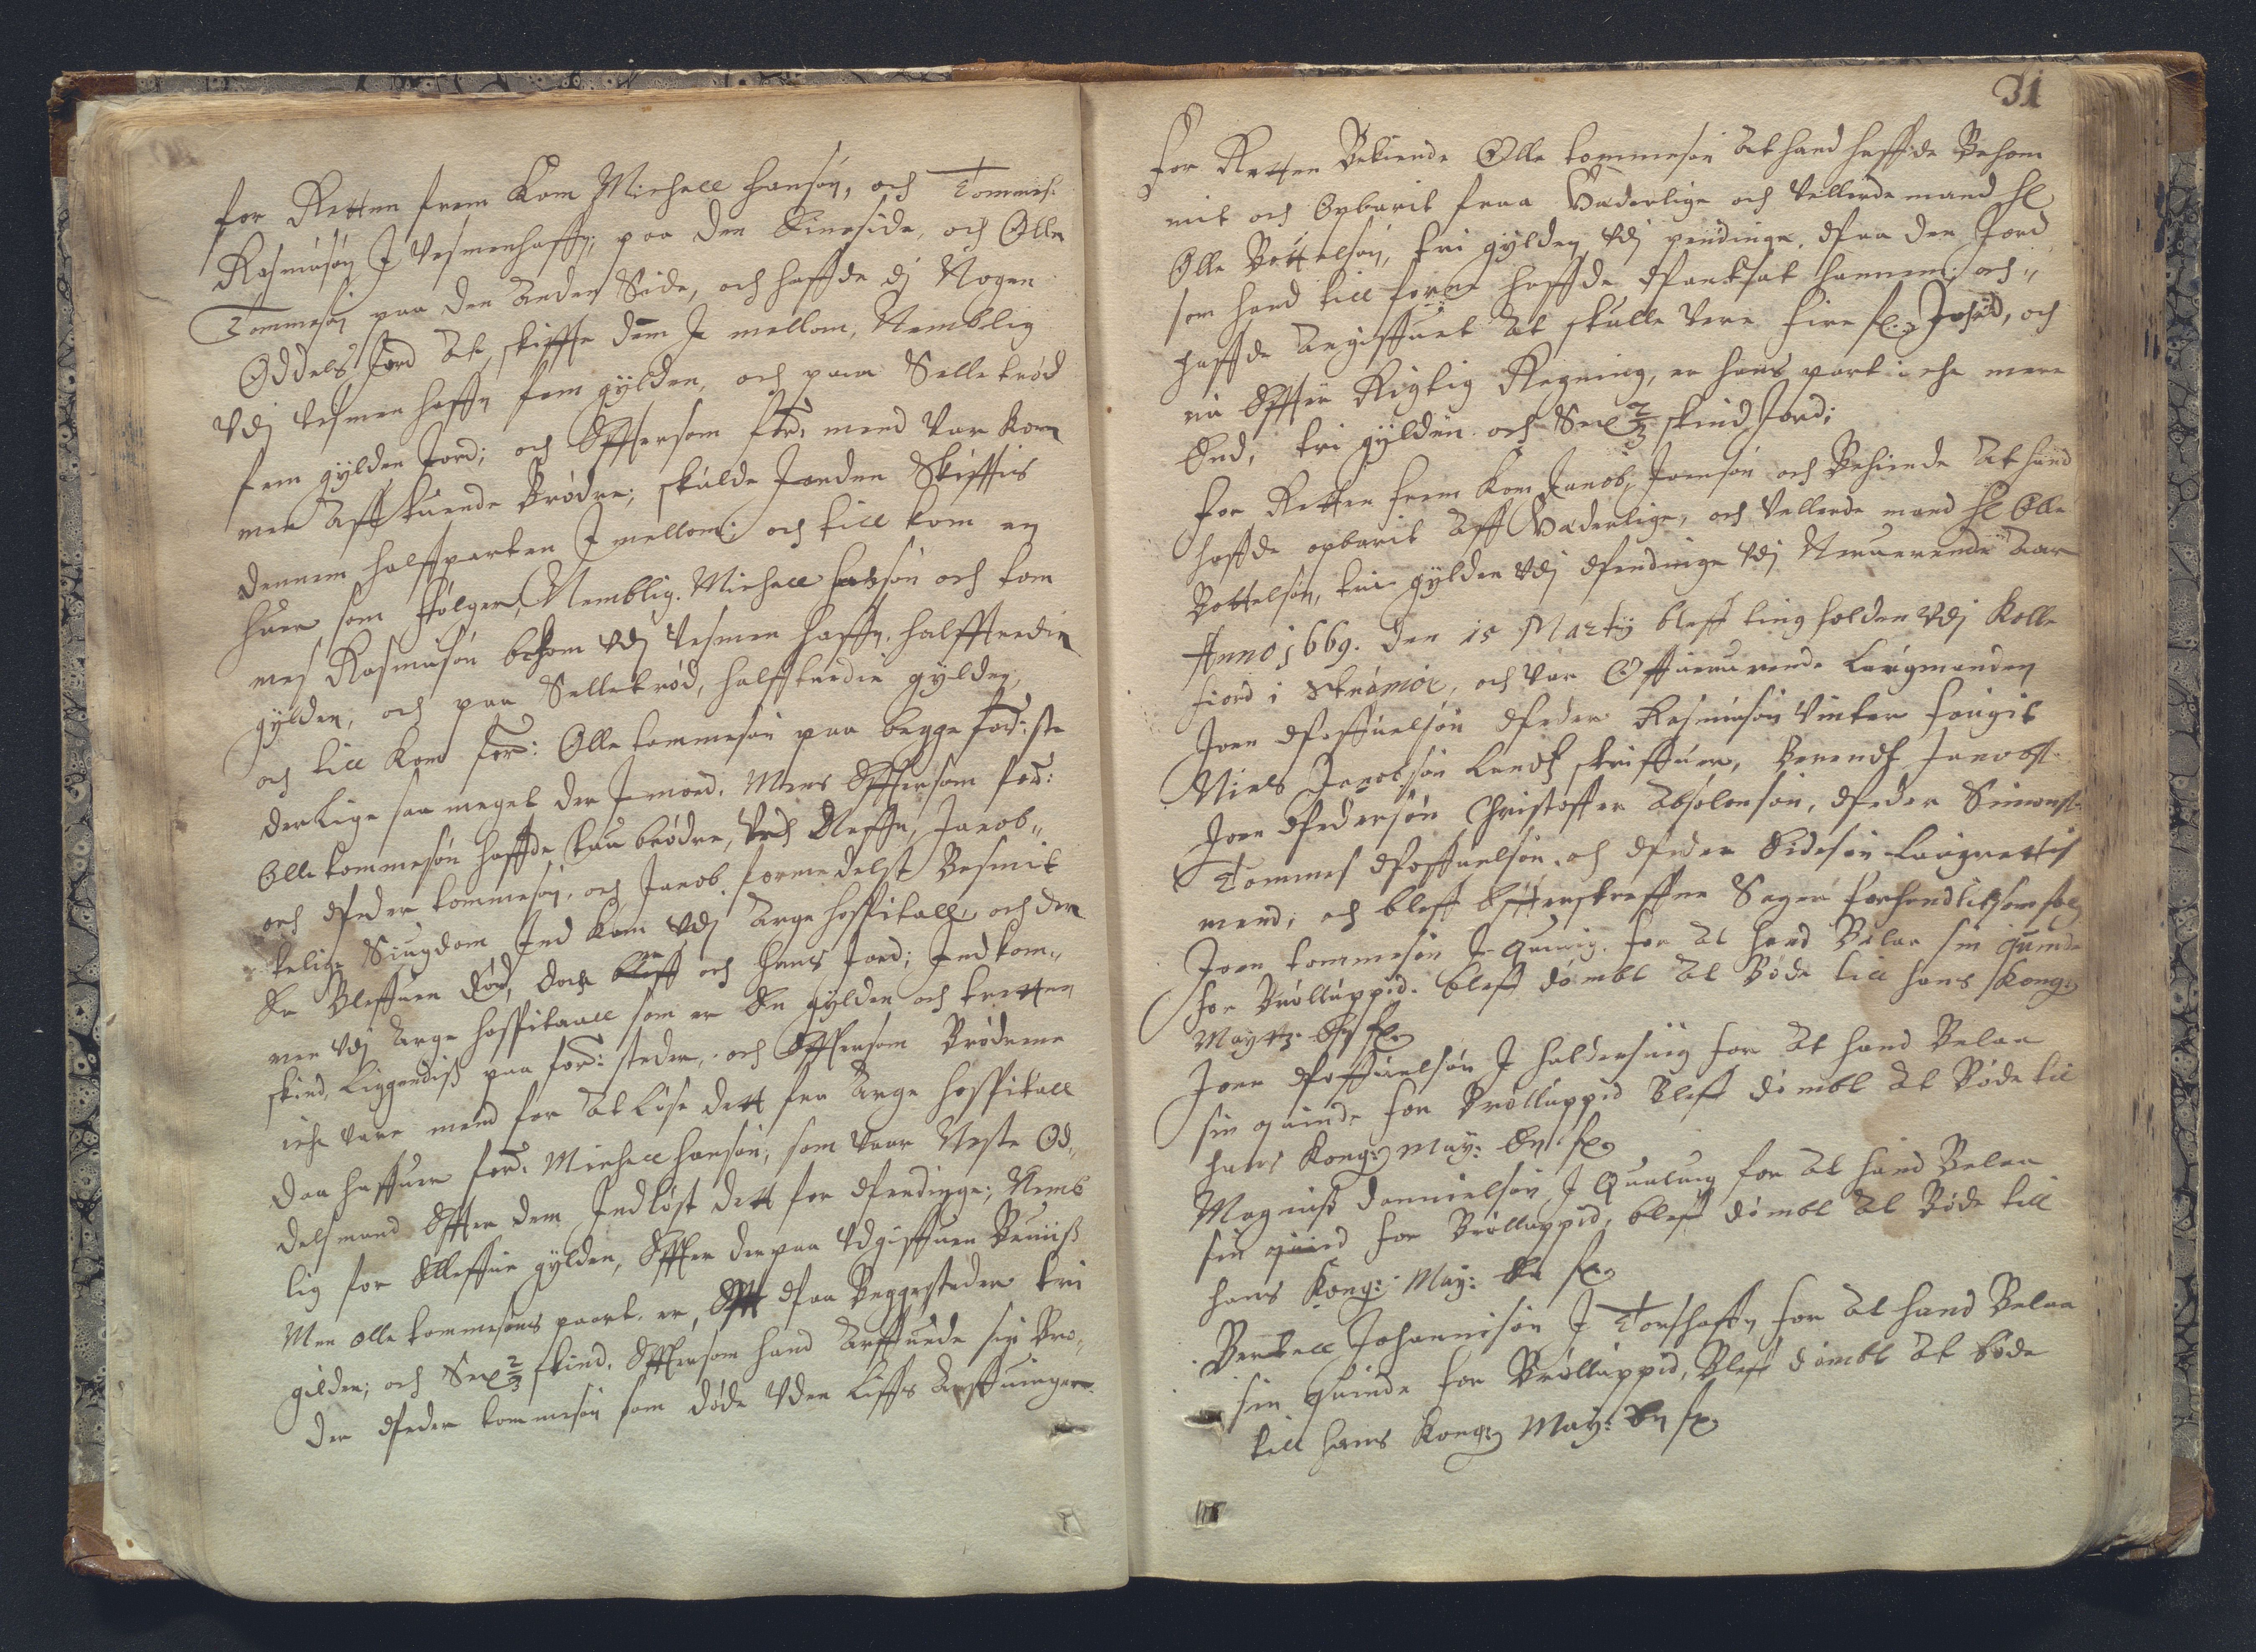 for Retten frem Kom Michell hansøn, och Tommes
Rasmusøn J Vesmenhaffn, paa den Eineside, och Olle
Tommesøn paa den Anden Side, och haffde dj Nogen
Oddels Jord at skiffte dem Je mellom, Nemblig
Vdj Vesmen haffn fem gylden, och paa Selletrød
fem gylden Jord; och Effttersom ford: mend Var Kom
men Aff tuende Brødre; skulde Jorden Skifftis
dennem halffparten J mellom; och till kom en
huer som følger, Nemblig. Michell hansøn och tom
mes Rasmusøn bekom Vdj Vesmen haffn. halfftredie
gylden, och paa Selletrød, halfftredie gylden,
och till Kom ford: Olle tommesøn paa begge ford: ste
der Lige saa meget der Jmoed. Mens Effttersom ford:
Olle tommesøn haffde tau brødre, Ved Neffn, Jacob
och Peder tommesøn. och Jacob formedelst Besmit
telige Siugdom Ind kom Vdj Arge hospitall, och der
Er Bleffuen død, doch bleff och hans Jord; Indkom
men Vdj Arge hospitaall som er En gylden och tretten
skind, Liggendiss paa ford: steder, och Effttersom Brødrene
iche Vare mend for At Løse dett fra Arge hospitall
Daa haffuer ford: Michell hansøn, som Vaar Neste Od
dels mand Effter dem Indløst dett for Pendinge; Nemb
lig for Elleffue gylden, Effter derpaa Vdgiffuen Beuiiss
Men olle tommesøns paart. er, Paa Beggesteder tri
gilden; och Sex 2/3 skind. Effttersom hand Arffuede sin Bro
der Peder tommesøn som døde Vden Liffs Arffuinger.
31
For Retten Bekiende Olle tommesøn At hand haffde Bekom
mit och Opbarit fraa Hæderlige och Vellerde mand Hl
Olle Bottelsøn, tri gylden Vdj pendinge, Paa den Jord
som hand till forne haffde Pantsat hannem; och
haffde Angiffuet At skulle Vere fire gl. Jord, och
nu Effter Rigtig Regning, er hans part iche mere
End, tri gylden och Sex 2/3 skind Jord;
For Retten frem kom Jacob Joensøn och Bekiende At hand
haffde opbarit Aff Hæderlige, och Vellerde mand Hl Olle
Bottelsøn, tri gylden Vdj Pendinge Vdj Neruerende Aar
Anno 1669. den 15 Martij bleff ting holden Vdj Kolle
fiord i Strømøe, och Var Offuerurende Laugmanden
Joen Poffuelsøn Peder Rasmusøn Vinter fougit
Niels Jacobsøn Landz skriffuer, Berendt Jacobs.
Joen Pedersøn Christoffer Absolonsøn, Peder Simons.
Tommes Poffuelsøn. och Peder Eidesøn Laugrettis
mend; och bleff Effterskreffne Sager forhandlit som følg
Joen tommesøn J Quiuig. for At hand Belaa sin quinde
for Brølluppid. bleff dømbt At Bøde till hans Kong:
Maytt. En gl.
Joen Poffuelsøn J haldersuig for At hand Belaa
sin quinde for Brølluppid Bleff dømbt At Bøde til
hans Kong: May: En gl.
Magnuss Danielsøn J Qualuig for At hand Belaa
sin quind for Brølluppid, bleff dømbt At Bøde till
hans Kong: May: En gl.
Bertell Johannisøn J Torshaffn for At hand Belaa
sin quinde for Brølluppid, Bleff dømbt At bøde
till hans Kong: May: En gl.